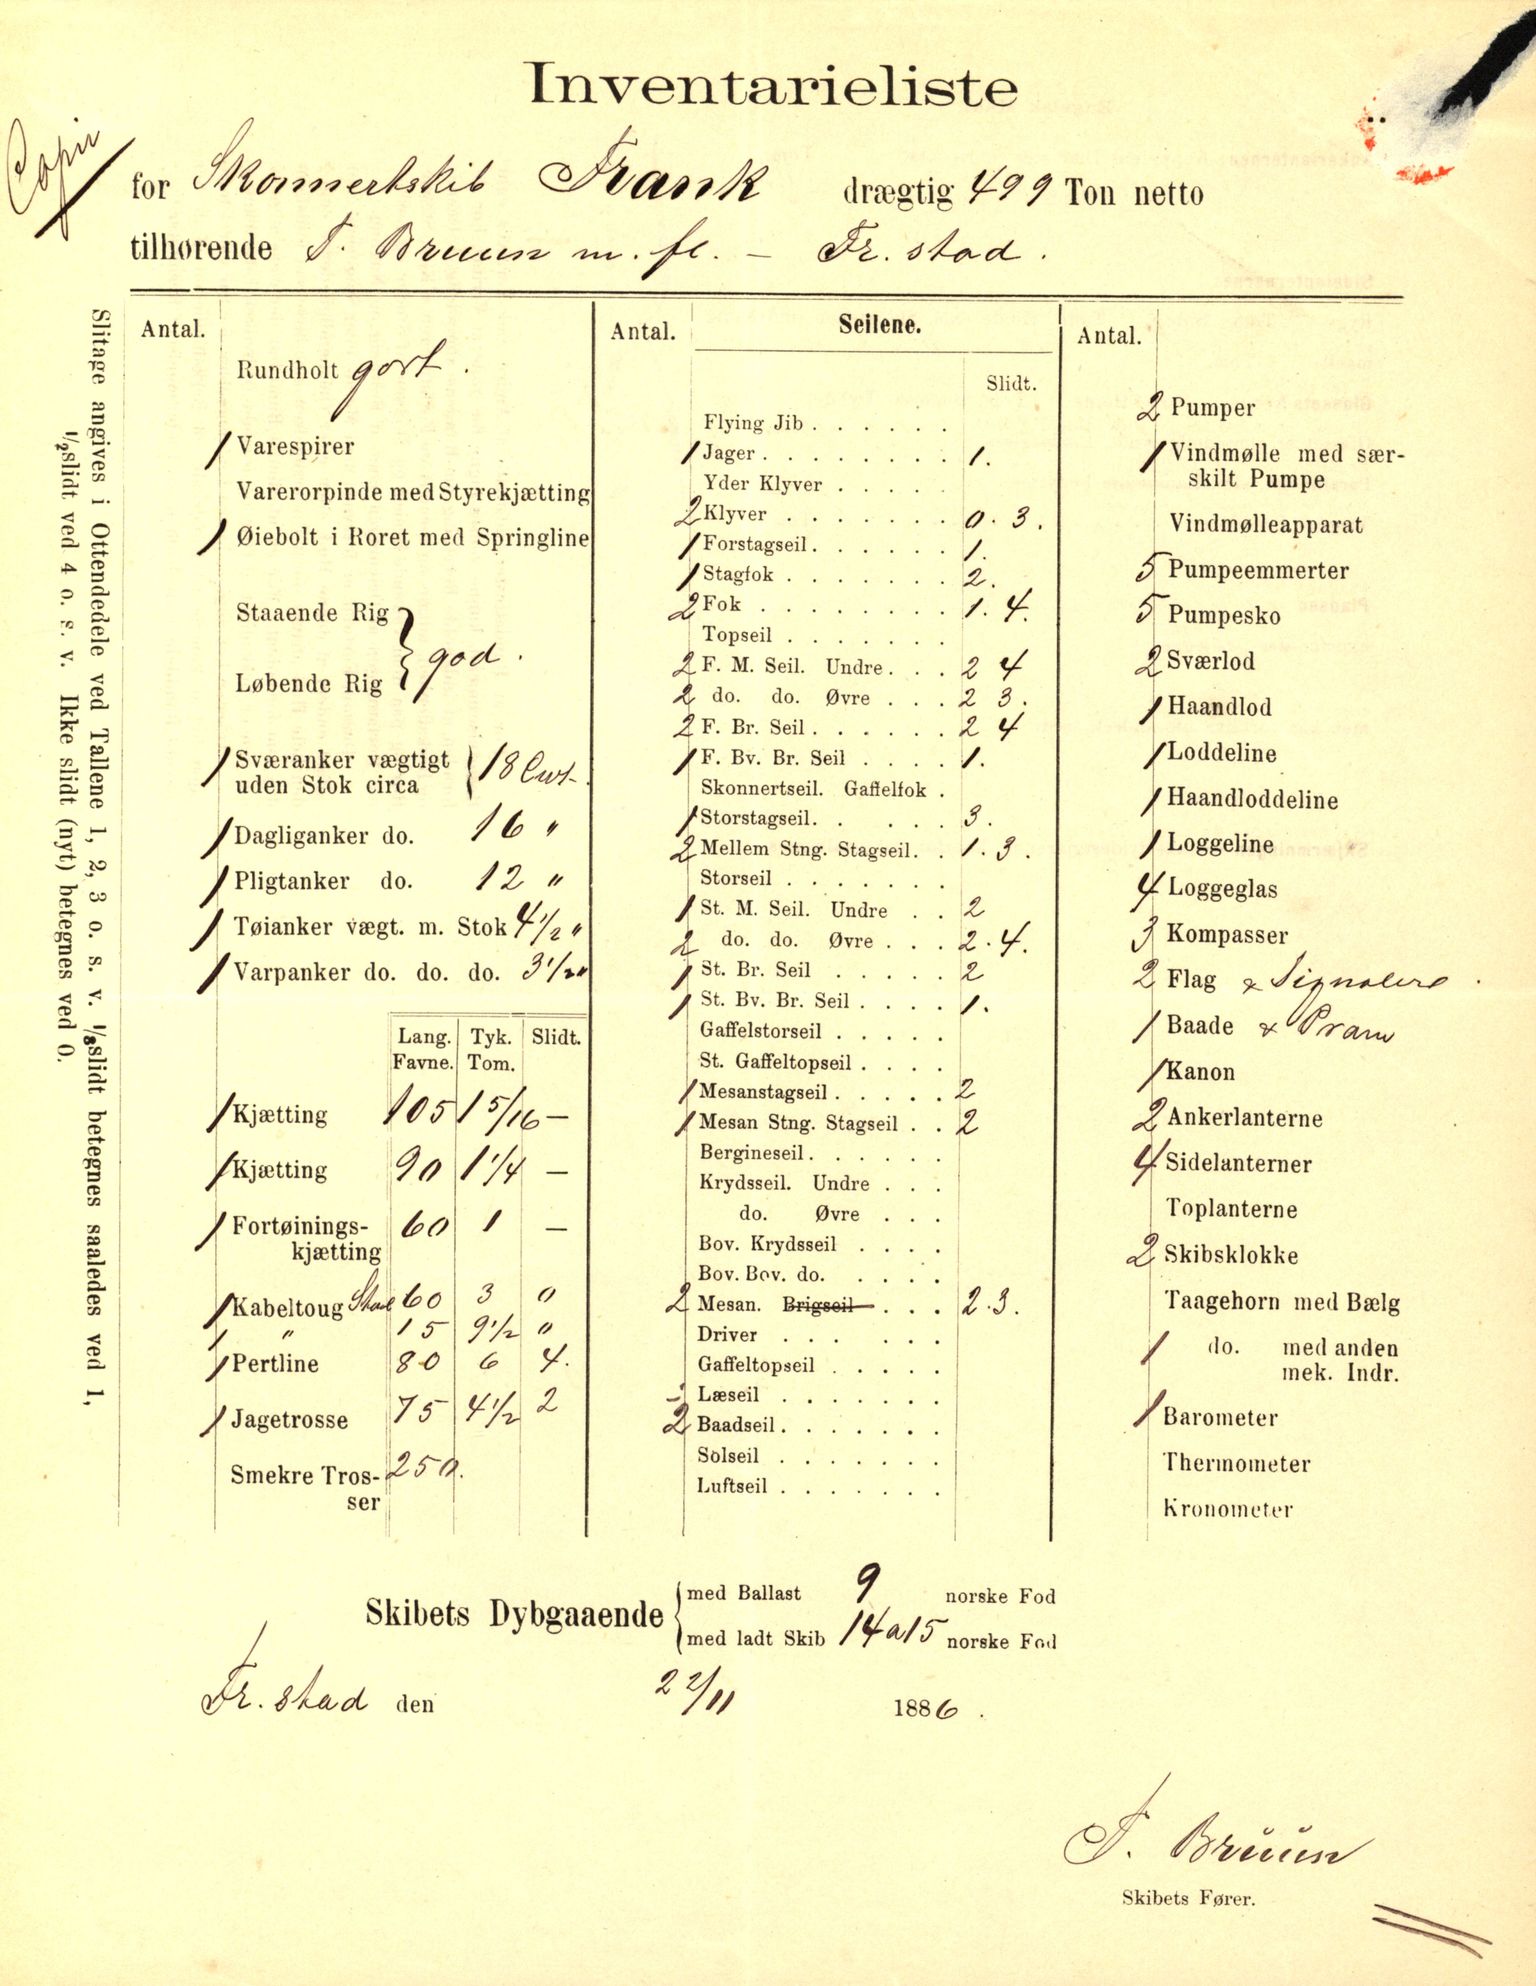 Inventarieliste
Copie
for Skonnertskib Frank drægtig 499 Ton netto
tilhørende F. Bruun m. fl. — Fr. stad.
Slitage angives i Ottendedele ved Tallene 1, 2, 3 o. s. v. 1/8 slidt betegnes saaledes ved 1,
1/2 slidt ved 4 o. s. v. Ikke slidt (nyt) betegnes ved 0.
Antal.
Rundholt godt.
1 Varespirer
Varerorpinde med Styrekjætting
1 Øiebolt i Roret med Springline
Staaende Rig
Løbende Rig } god.
1 Sværanker vægtigt
uden Stok circa } 18 Cwt.
1 Dagliganker do. 16 "
1 Pligtanker do. 12 "
1 Tøianker vægt. m. Stok 4 1/2 "
1 Varpanker do. do. do. 3 1/2 "
Lang. Tyk. Slidt.
Favne. Tom.
1 Kjætting 105 1 5/16 —
1 Kjætting 90 1 1/4 —
1 Fortøinings-
kjætting 60 1 —
1 Kabeltoug Staal 60 3 0
1 " 15 9 1/2 "
1 Pertline 80 6 4.
1 Jagetrosse 75 4 1/2 2
Smekre Tros-
ser 250.
Antal. Seilene.
Slidt.
Flying Jib . . . . . .
1 Jager . . . . . . . . 1.
Yder Klyver . . . . .
2 Klyver . . . . . . . 0. 3.
1 Forstagseil . . . . . . 1.
1 Stagfok . . . . . . . 2.
2 Fok . . . . . . . . 1. 4.
Topseil . . . . . . .
2 F. M. Seil. Undre . . . 2 4
2 do. do. Øvre . . . 2 3.
2 F. Br. Seil . . . . . . 2 4
1 F. Bv. Br. Seil . . . . 1.
Skonnertseil. Gaffelfok .
1 Storstagseil. . . . . 3.
2 Mellem Stng. Stagseil. . 1. 3.
Storseil . . . . . . .
1 St. M. Seil. Undre . . 2
2 do. do. Øvre . . . 2. 4.
1 St. Br. Seil . . . . . 2
1 St. Bv. Br. Seil . . . . 1.
Gaffelstorseil . . . . .
St. Gaffeltopseil . . . .
1 Mesanstagseil . . . . . 2
1 Mesan Stng. Stagseil . . 2
Bergineseil . . . . . .
Krydsseil. Undre . . .
do. Øvre . . .
Bov. Krydsseil . . . .
Bov. Bov. do. . . . .
2 Mesan. Brigseil . . . 2. 3.
Driver . . . . . .
Gaffeltopseil . . . . .
- Læseil . . . . . . .
2 Baadseil . . . . . . .
Solseil . . . . . . .
Luftseil . . . . . . .
Antal.
2 Pumper
1 Vindmølle med sær-
skilt Pumpe
Vindmølleapparat
5 Pumpeemmerter
5 Pumpesko
2 Sværlod
1 Haandlod
1 Loddeline
1 Haandloddeline
1 Loggeline
4 Loggeglas
3 Kompasser
2 Flag & Signalere.
1 Baade & Pram
1 Kanon
2 Ankerlanterne
4 Sidelanterner
Toplanterne
2 Skibsklokke
Taagehorn med Bælg
1 do. med anden
mek. Indr.
1 Barometer
Thermometer
Kronometer
Skibets Dybgaaende { med Ballast 9 norske Fod
med ladt Skib 14 a 15 norske Fod
Fr. stad den 22/11 1886.
F. Bruun
Skibets Fører.